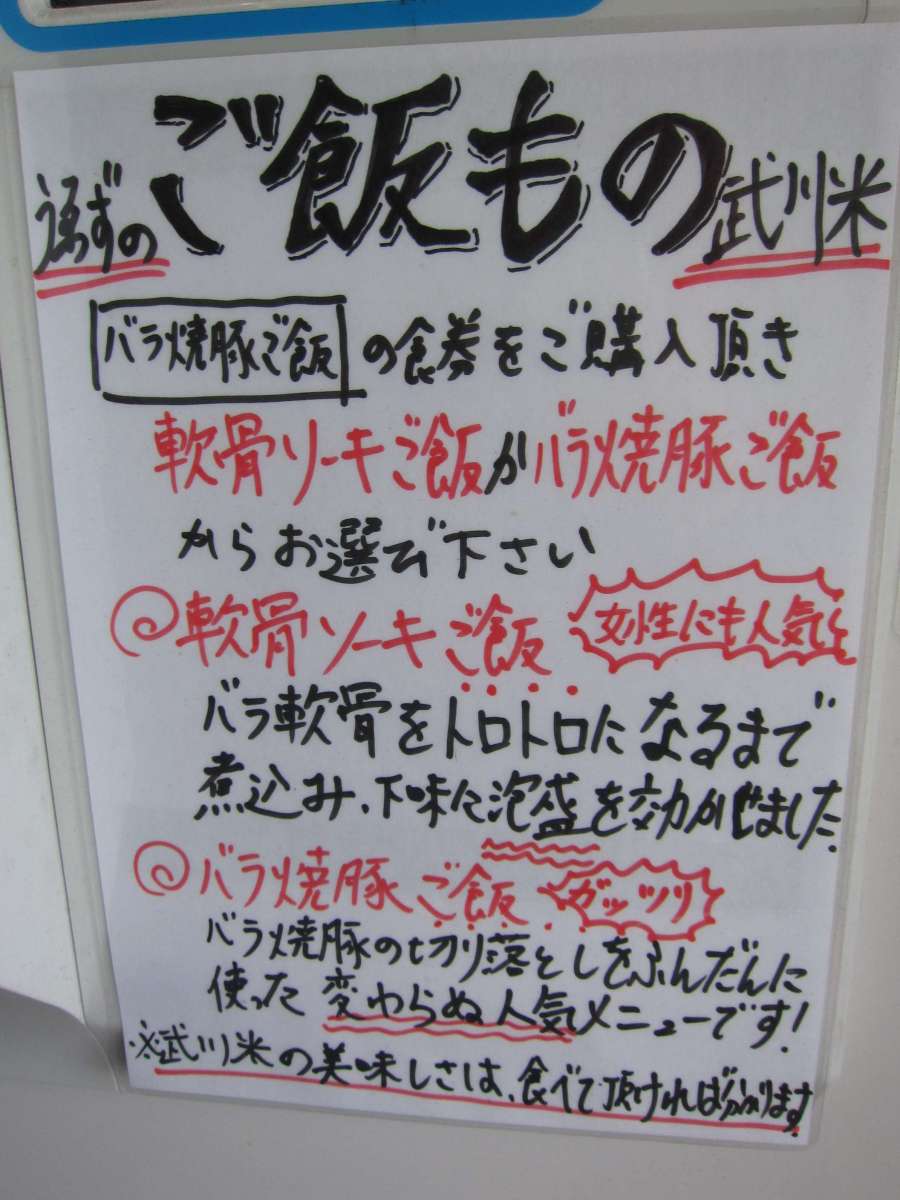 ご飯もの
武川米
バラ焼豚ご飯の食券をご購入頂き
軟骨ソーキご飯かバラ焼豚ご飯
からお選び下さい
軟骨ソーキご飯 女性にも人気
バラ軟骨をトロトロになるまで
煮込み、下味に泡盛を効かせました
バラ焼豚ご飯 ガッツリ
バラ焼豚の切り落としをふんだんに
使った変わらぬ人気メニューです!
※武川米の美味しさは、食べて頂ければ分かります